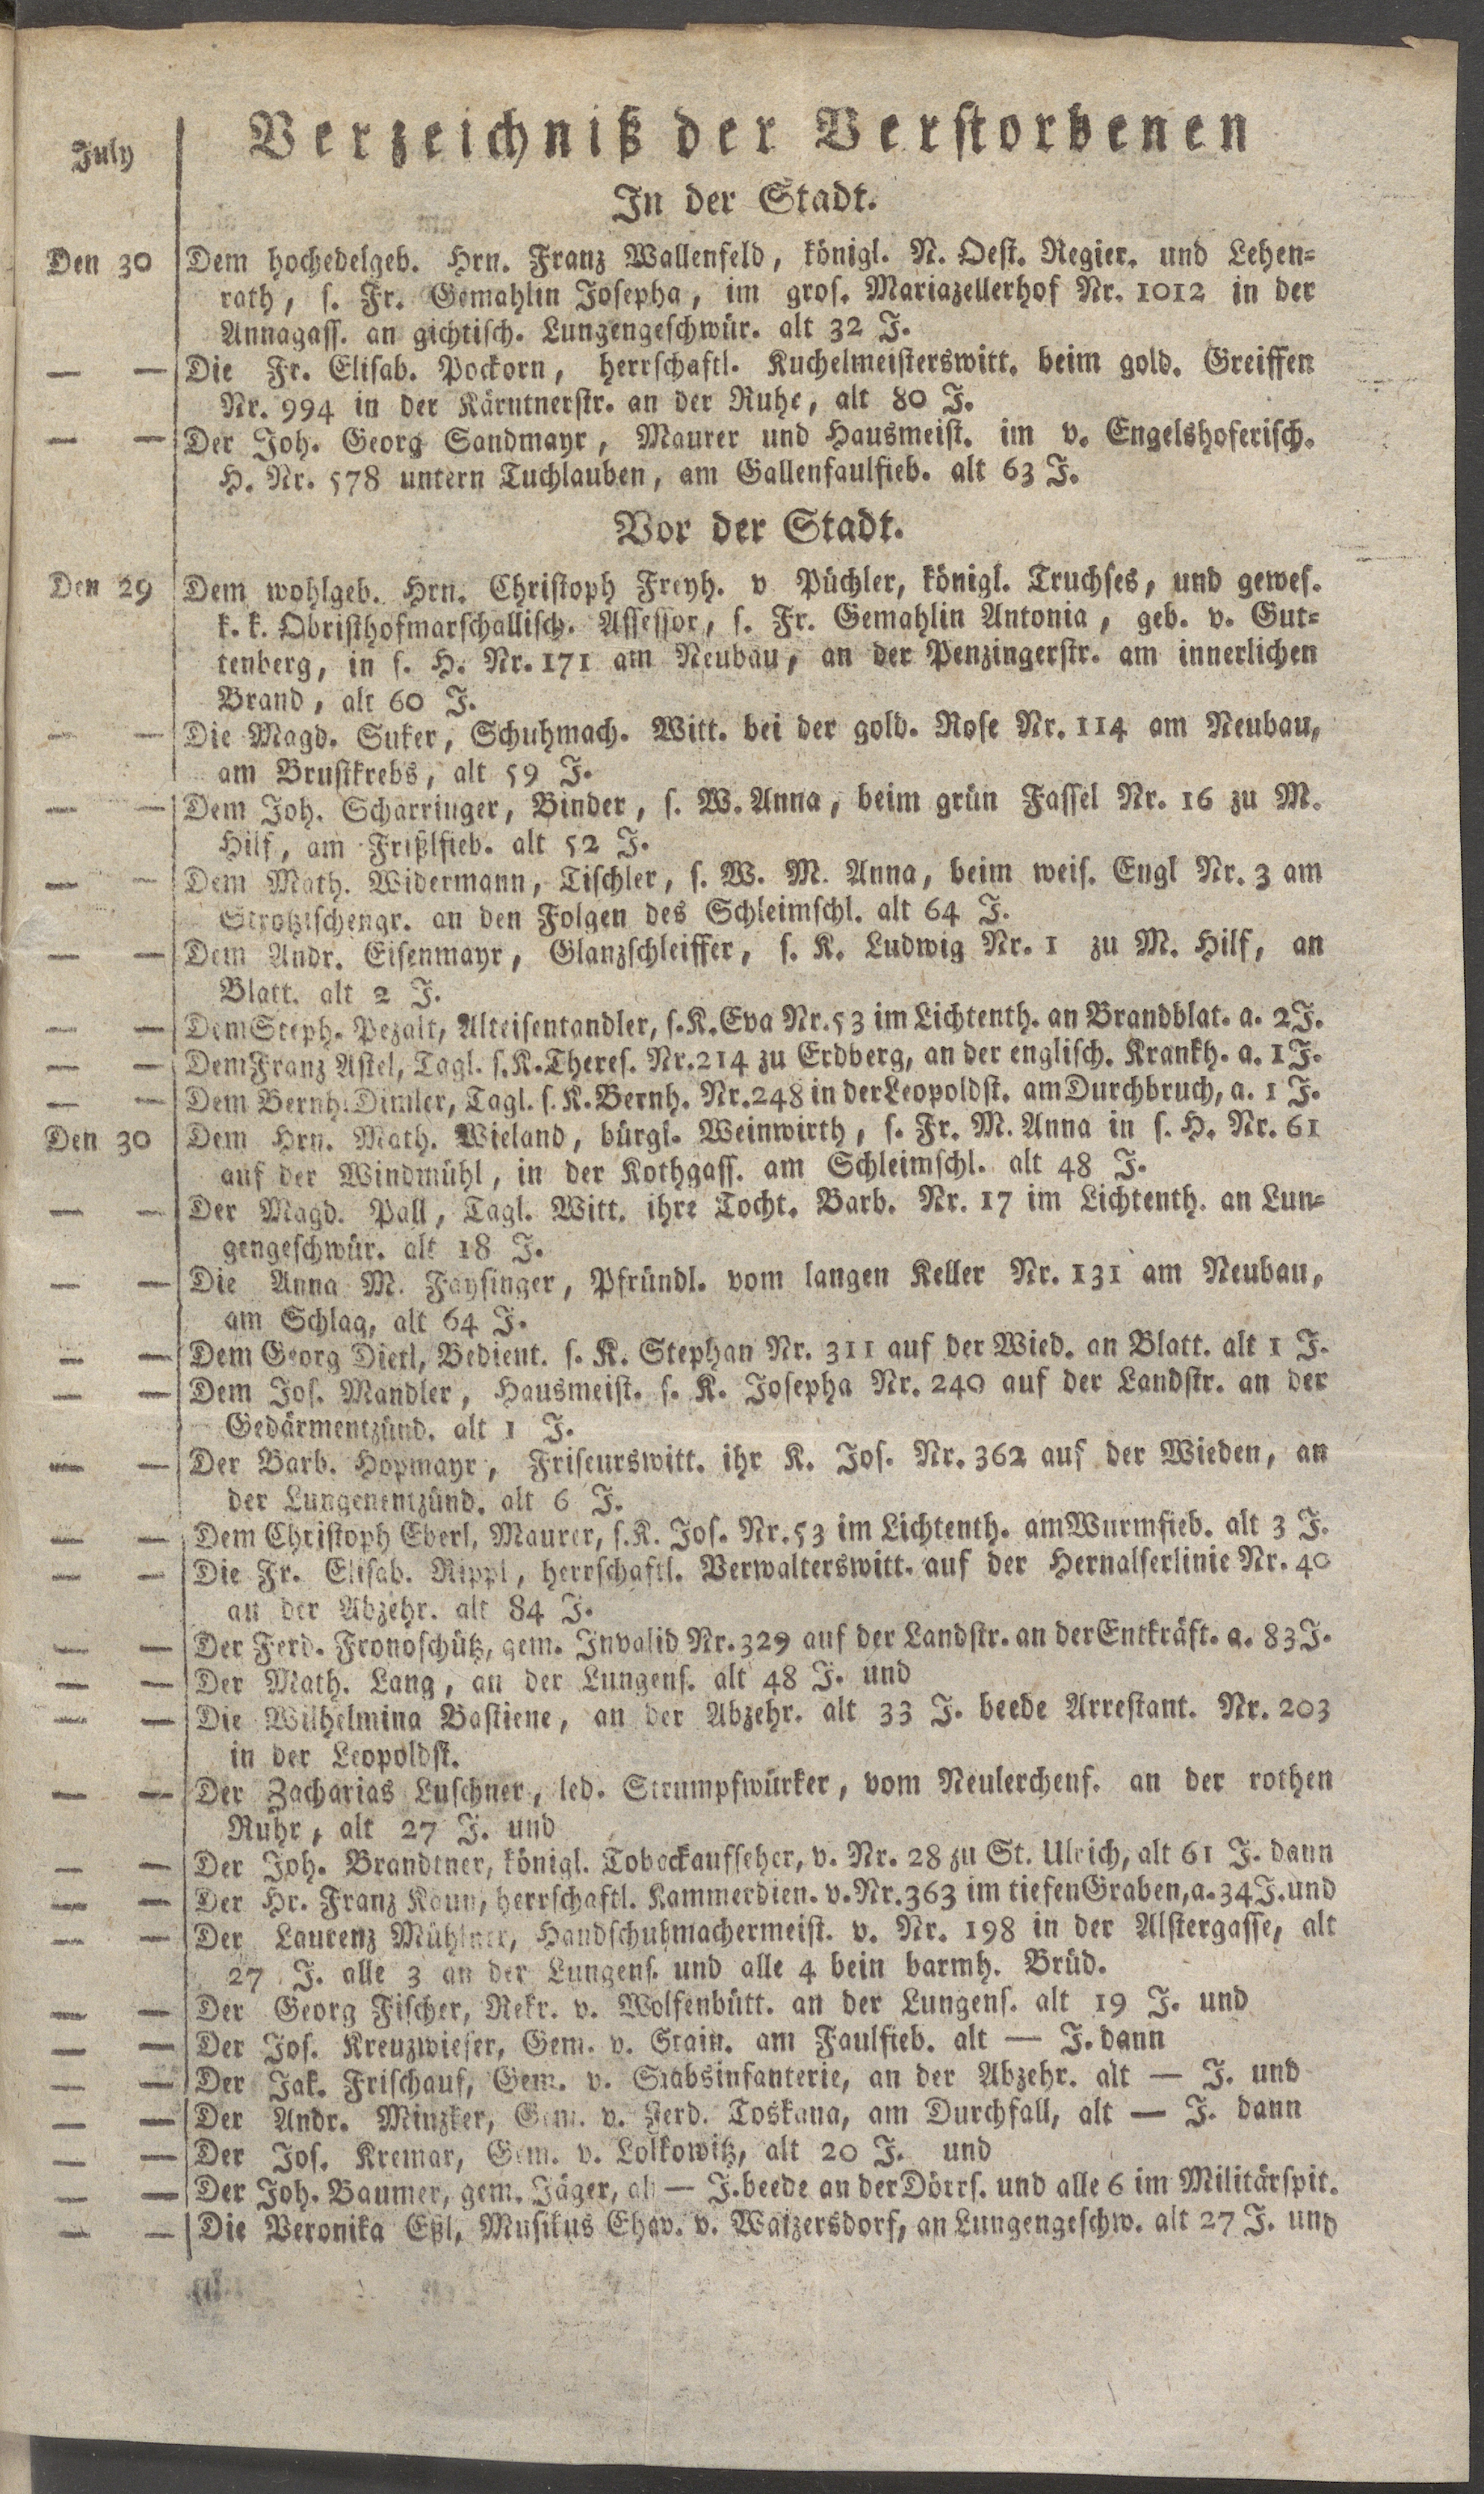 July
Verzeichniß der Verstorbenen
In der Stadt.
Den 30 Dem hochedelgeb. Hrn. Franz Wallenfeld, königl. N. Oest. Regier. und Lehen=
rath, s. Fr. Gemahlin Josepha, im gros. Mariazellerhof Nr. 1012 in der
Annagass. an gichtisch. Lungengeschwür. alt 32 J.
— — Die Fr. Elisab. Pockorn, herrschaftl. Kuchelmeisterswitt. beim gold. Greiffen
Nr. 994 in der Kärntnerstr. an der Ruhe, alt 80 J.
— — Der Joh. Georg Sandmayr, Maurer und Hausmeist. im v. Engelshoferisch.
H. Nr. 578 untern Tuchlauben, am Gallenfaulfieb. alt 63 J.
Vor der Stadt.
Den 29 Dem wohlgeb. Hrn. Christoph Freyh. v Püchler, königl. Truchses, und gewes.
k. k. Obristhofmarschallisch. Assessor, s. Fr. Gemahlin Antonia, geb. v. Gut=
tenberg, in s. H. Nr. 171 am Neubau, an der Penzingerstr. am innerlichen
Brand, alt 60 J.
— — Die Magd. Suker, Schuhmach. Witt. bei der gold. Rose Nr. 114 am Neubau,
am Brustkrebs, alt 59 J.
— — Dem Joh. Scharringer, Binder, s. W. Anna, beim grün Fassel Nr. 16 zu M.
Hilf, am Frißlfieb. alt 52 J.
— — Dem Math. Widermann, Tischler, s. W. M. Anna, beim weis. Engl Nr. 3 am
Strotzischengr. an den Folgen des Schleimschl. alt 64 J.
— — Dem Andr. Eisenmayr, Glanzschleiffer, s. K. Ludwig Nr. 1 zu M. Hilf, an
Blatt. alt 2 J.
— — Dem Steph. Pezalt, Alteisentandler, s. K. Eva Nr. 53 im Lichtenth. an Brandblat. a. 2 J.
— — Dem Franz Astel, Tagl. s. K. Theres. Nr. 214 zu Erdberg, an der englisch. Krankh. a. 1 J.
— — Dem Bernh. Dimler, Tagl. s. K. Bernh. Nr. 248 in der Leopoldst. am Durchbruch, a. 1 J.
Den 30 Dem Hrn. Math. Wieland, bürgl. Weinwirth, s. Fr. M. Anna in s. H. Nr. 61
auf der Windmühl, in der Kothgass. am Schleimschl. alt 48 J.
— — Der Magd. Pall, Tagl. Witt. ihre Tocht. Barb. Nr. 17 im Lichtenth. an Lun=
gengeschwür. alt 18 J.
— — Die Anna M. Faysinger, Pfründl. vom langen Keller Nr. 131 am Neubau,
am Schlag, alt 64 J.
— — Dem Georg Dietl, Bedient. s. K. Stephan Nr. 311 auf der Wied. an Blatt. alt 1 J.
— — Dem Jos. Mandler, Hausmeist. s. K. Josepha Nr. 240 auf der Landstr. an der
Gedärmentzünd. alt 1 J.
— — Der Barb. Hopmayr, Friseurswitt. ihr K. Jos. Nr. 362 auf der Wieden, an
der Lungenentzünd. alt 6 J.
— — Dem Christoph Eberl, Maurer, s. K. Jos. Nr. 53 im Lichtenth. am Wurmfieb. alt 3 J.
— — Die Fr. Elisab. Rippl, herrschaftl. Verwalterswitt. auf der Hernalserlinie Nr. 40
an der Abzehr. alt 84 J.
— — Der Ferd. Fronoschütz, gem. Invalid Nr. 329 auf der Landstr. an der Entkräft. a. 83 J.
— — Der Math. Lang, an der Lungens. alt 48 J. und
— — Die Wilhelmina Bastiene, an der Abzehr. alt 33 J. beede Arrestant. Nr. 203
in der Leopoldst.
— — Der Zacharias Luschner, led. Strumpfwürker, vom Neulerchenf. an der rothen
Ruhr, alt 27 J. und
— — Der Joh. Brandtner, königl. Tobackaufseher, v. Nr. 28 zu St. Ulrich, alt 61 J. dann
— — Der Hr. Franz Kaun, herrschaftl. Kammerdien. v. Nr. 363 im tiefen Graben, a. 34 J. und
— — Der Laurenz Mühlner, Handschuhmachermeist. v. Nr. 198 in der Alstergasse, alt
27 J. alle 3 an der Lungens. und alle 4 bein barmh. Brüd.
— — Der Georg Fischer, Rekr. v. Wolfenbütt. an der Lungens. alt 19 J. und
— — Der Jos. Kreuzwieser, Gem. v. Stain. am Faulfieb. alt — J. dann
— — Der Jak. Frischauf, Gem. v. Stabsinfanterie, an der Abzehr. alt — J. und
— — Der Andr. Minzker, Gem. v. Ferd. Toskana, am Durchfall, alt — J. dann
— — Der Jos. Kremar, Gem. v. Lolkowitz, alt 20 J. und
— — Der Joh. Baumer, gem. Jäger, alt — J. beede an der Dörrs. und alle 6 im Militärspit.
— — Die Veronika Eßl, Musikus Ehew. v. Waizersdorf, an Lungengeschw. alt 27 J. und